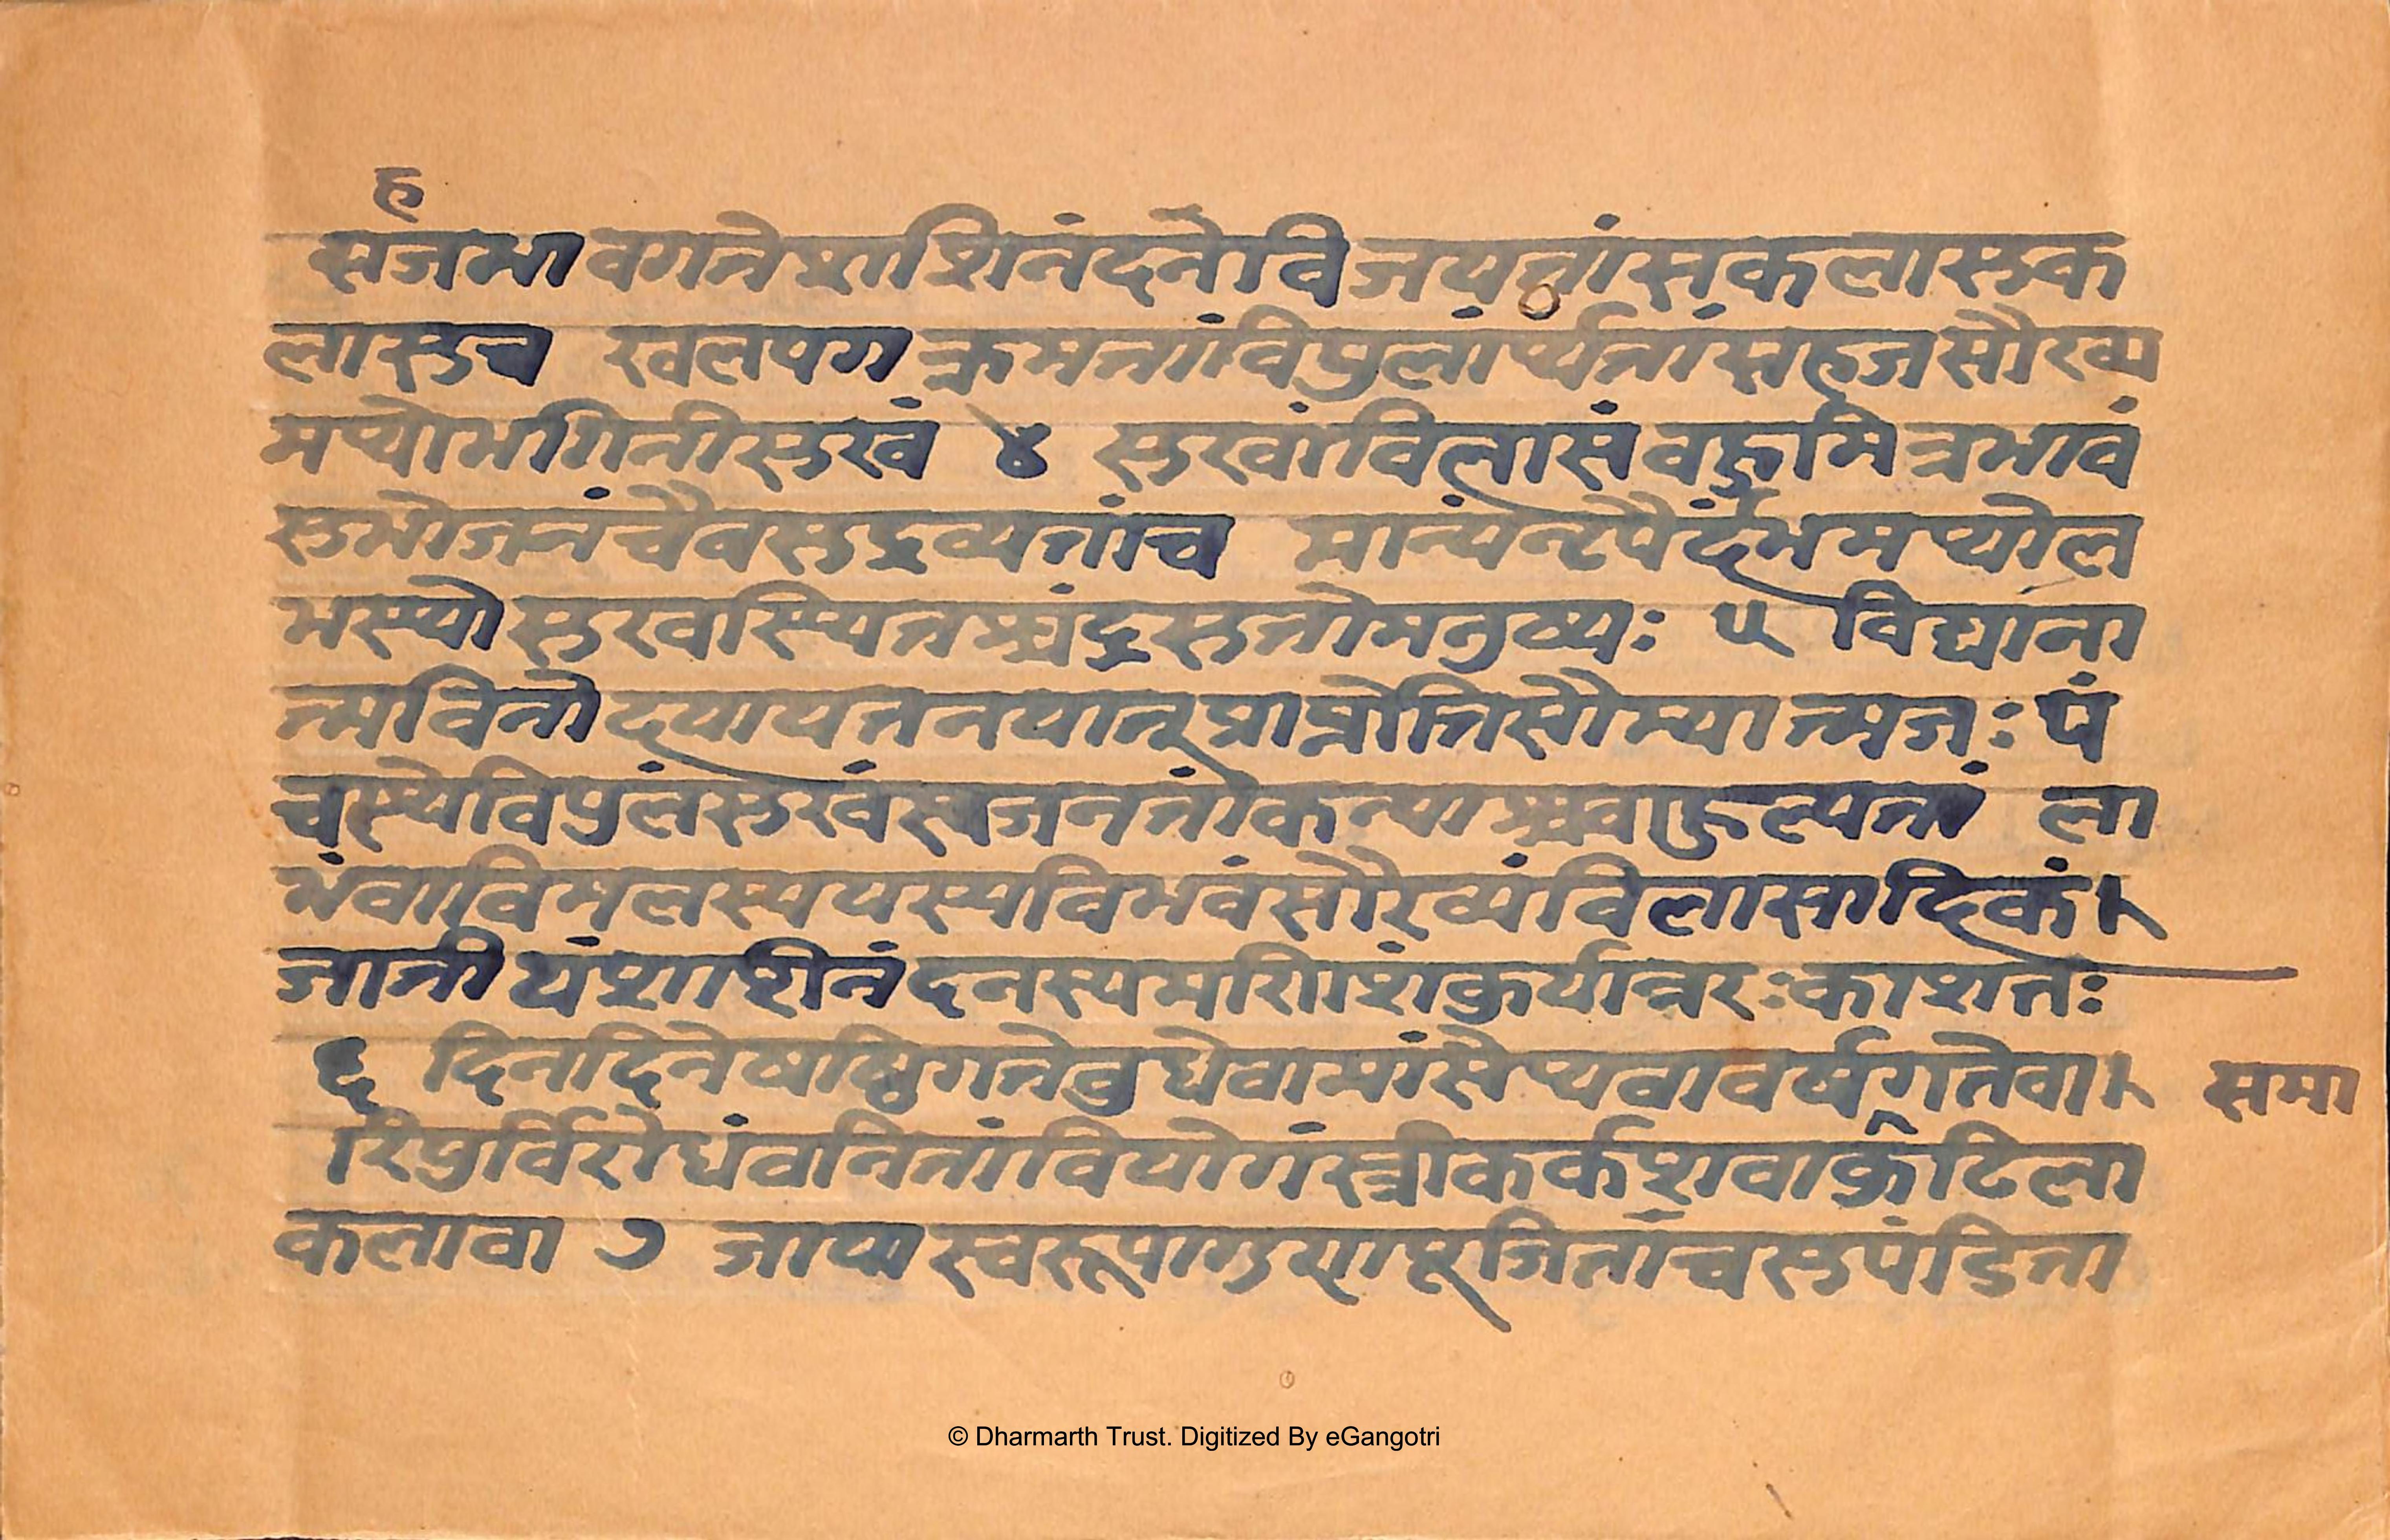 ह
सजभावगतेशशिनंदनेविजयतांसकलासुक
लासुच खलपगक्रमतांविपुलांर्थतांसहजसौख्य
मप्योभगिनीसुखं ४ सुखांविलासंवहुमित्रभावं
सुभोजनंचैवसुद्रव्यतांच मान्यंनृपैर्दंभमप्योल
भस्यो सुखस्थितश्चंद्रसुतोमनुष्यः ५ विद्याना
त्मविनोदयायतनयात् प्राप्नोतिसौम्यात्मजः पं
चस्थेविपुलंसुखंस्वजनतांकन्याश्चवाहुल्यतां ला
भंवाविमलस्ययस्यविभवंसौख्यंविलासादिकं।
जातीयंशशीनंदनस्यमरिाशंकुर्यान्नरःकाशतः
६ दिनादिनेषष्ठिगतेवुधेवामांसेप्यवावर्षगतेवा। समा
रिपुर्विरोधंवनितांवियोगंस्त्रीकर्कशवाकुटिला
कलावा ७ जायास्वरूपागुणपूजितांचसुपंडिता
© Dharmarth Trust. Digitized By eGangotri